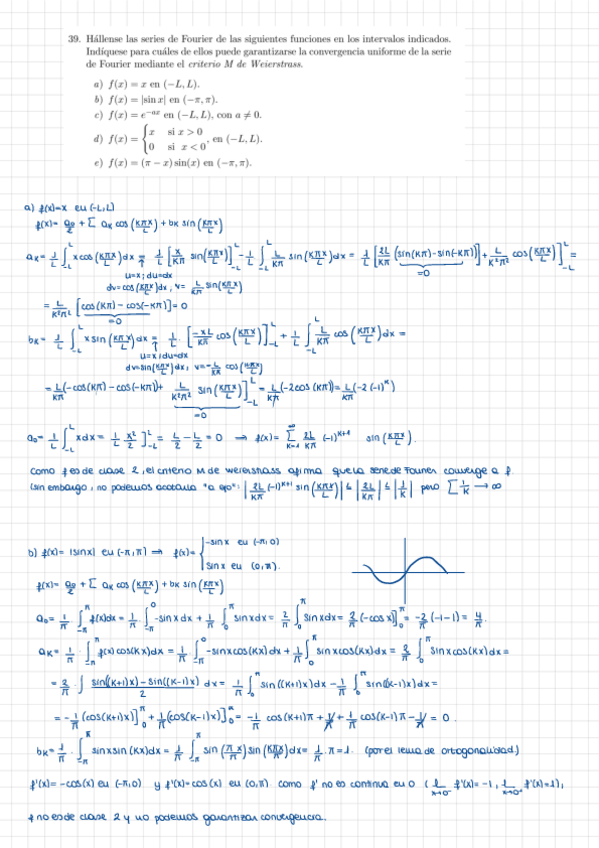 39. Hállense las series de Fourier de las siguientes funciones en los intervalos indicados.
Indíquese para cuáles de ellos puede garantizarse la convergencia uniforme de la serie
de Fourier mediante el criterio M de Weierstrass.
a) f(x) = x en (−L, L).
b) f(x) = |sin x| en (−π, π).
c) f(x) = e^{−ax} en (−L, L), con a ≠ 0.
d) f(x) = { x si x > 0 ; 0 si x < 0 , en (−L, L).
e) f(x) = (π − x) sin(x) en (−π, π).
a) f(x)=x en (-L,L)
f(x)= a₀/2 + Σ aₖ cos(kπx/L) + bₖ sin(kπx/L)
aₖ = 1/L ∫_{-L}^{L} x cos(kπx/L) dx = 1/L [x L/kπ sin(kπx/L)]_{-L}^{L} - 1/L ∫_{-L}^{L} L/kπ sin(kπx/L) dx = 1/L [2L/kπ (sin(kπ)-sin(-kπ))] + L/k²π² cos(kπx/L)]_{-L}^{L} =
u=x; du=dx
=0
dv=cos(kπx/L)dx, v= L/kπ sin(kπx/L)
= L/k²π² [cos(kπ) - cos(-kπ)] = 0
=0
bₖ = 1/L ∫_{-L}^{L} x sin(kπx/L) dx = 1/L · [-xL/kπ cos(kπx/L)]_{-L}^{L} + 1/L ∫_{-L}^{L} L/kπ cos(kπx/L) dx =
u=x; du=dx
dv=sin(kπx/L)dx; v=-L/kπ cos(kπx/L)
= L/kπ (-cos(kπ) - cos(-kπ)) + L/k²π² sin(kπx/L)]_{-L}^{L} = L/kπ (-2cos(kπ)) = L/kπ (-2(-1)^k)
=0
a₀ = 1/L ∫_{-L}^{L} x dx = 1/L x²/2 ]_{-L}^{L} = L/2 - L/2 = 0 ⇒ f(x) = Σ_{k=1}^{∞} 2L/kπ (-1)^{k+1} sin(kπx/L).
Como f es de clase 2, el criterio M de weierstrass afirma que la serie de Fourier converge a f.
(sin embargo, no podemos acotarla "a ojo": |2L/kπ (-1)^{k+1} sin(kπx/L)| ≤ |2L/kπ| ≤ |1/k| pero Σ 1/k → ∞
b) f(x) = |sinx| en (-π,π) ⇒ f(x) = { -sinx en (-π,0) ; sinx en (0,π).
f(x)= a₀/2 + Σ aₖ cos(kπx/L) + bₖ sin(kπx/L)
a₀ = 1/π ∫_{-π}^{π} f(x)dx = 1/π · ∫_{-π}^{0} -sinx dx + 1/π ∫_{0}^{π} sinx dx = 2/π ∫_{0}^{π} sinx dx = 2/π (-cosx)]_{0}^{π} = -2/π (-1-1) = 4/π.
aₖ = 1/π · ∫_{-π}^{π} f(x) cos(kx)dx = 1/π ∫_{-π}^{0} -sinx cos(kx) dx + 1/π ∫_{0}^{π} sinx cos(kx) dx = 2/π ∫_{0}^{π} sinx cos(kx)dx =
= 2/π · ∫ sin((k+1)x) - sin((k-1)x)/2 dx = 1/π ∫_{0}^{π} sin((k+1)x)dx - 1/π ∫_{0}^{π} sin((k-1)x)dx =
= -1/π (cos(k+1)x)]_{0}^{π} + 1/π (cos(k-1)x)]_{0}^{π} = -1/π cos(k+1)π + 1/π + 1/π cos(k-1)π - 1/π = 0.
bₖ = 1/π · ∫_{-π}^{π} sinx sin(kx)dx = 1/π · ∫_{-π}^{π} sin(πx/π) sin(kπx/π) dx = 1/π · π = 1. (por el lema de ortogonalidad)
f'(x) = -cos(x) en (-π,0) y f'(x) = cos(x) en (0,π) como f' no es continua en 0 (L_{x→0⁻} f'(x) = -1, L_{x→0⁺} f'(x) = 1),
f no es de clase 2 y no podemos garantizar convergencia.